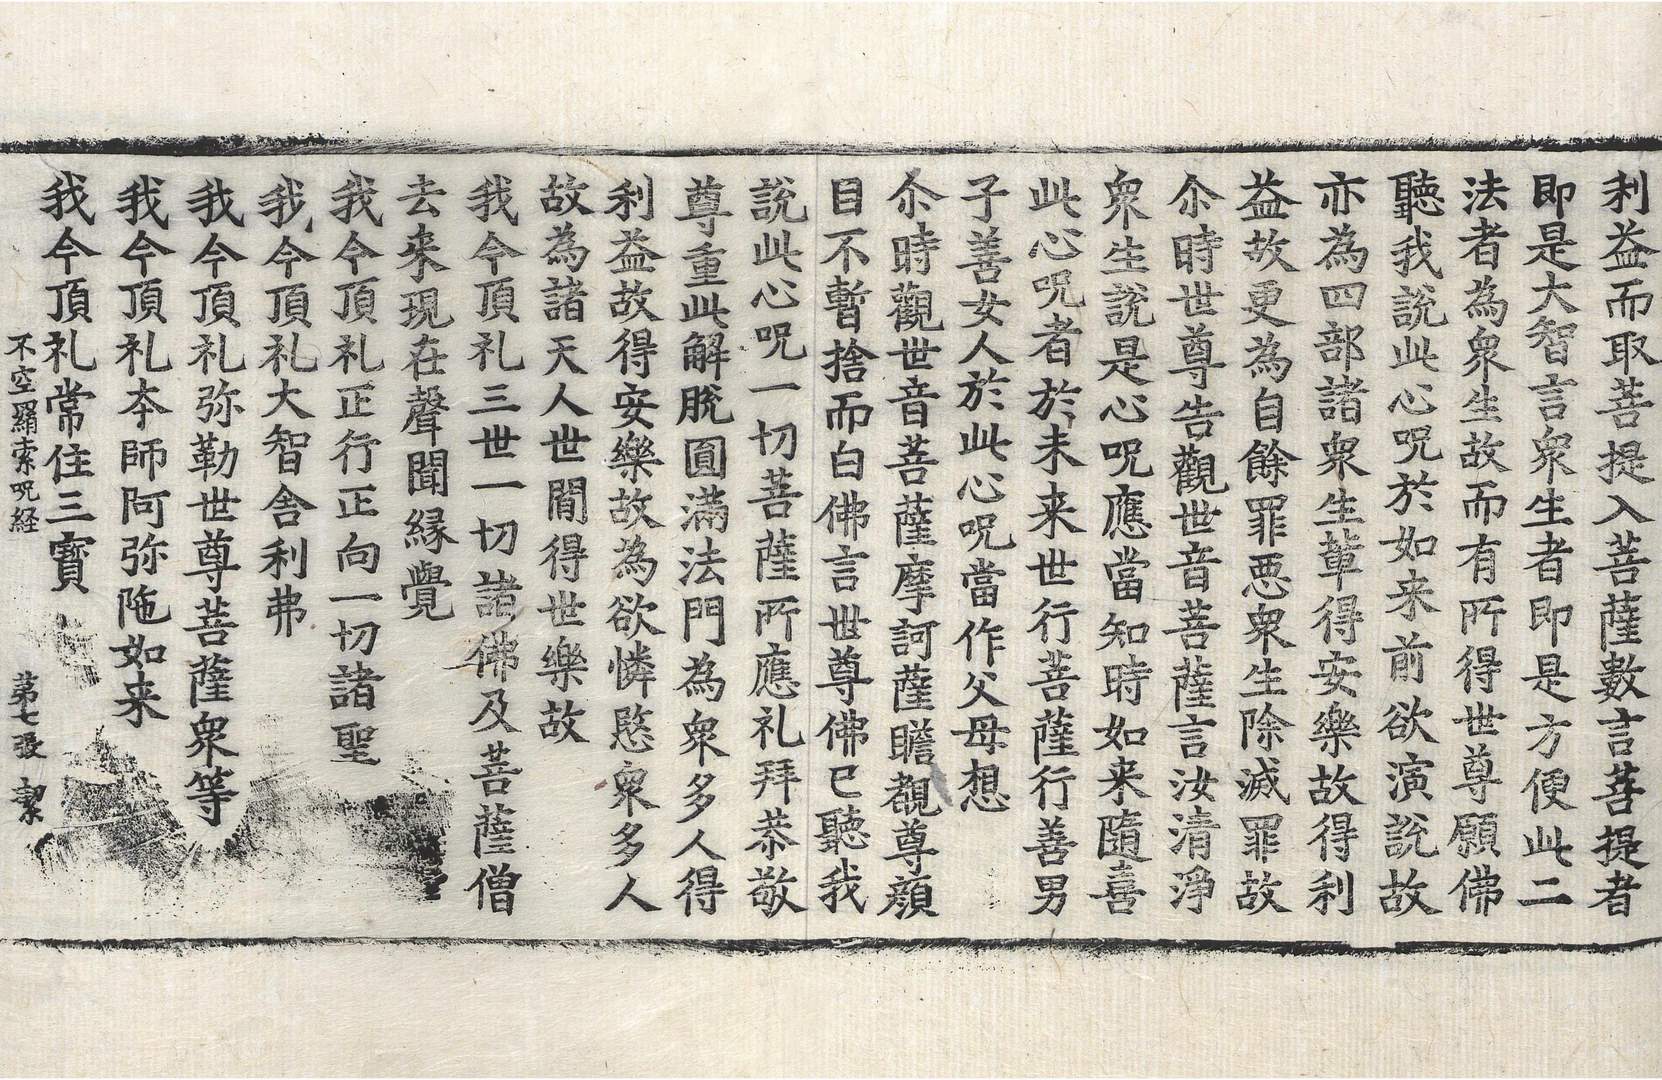 利益而取菩提入菩薩數言菩提者
即是大智言衆生者即是方便此二
法者為衆生故而有所得世尊願佛
聽我說此心呪於如来前欲演說故
亦為四部諸衆生軰得安樂故得利
益故更為自餘罪惡衆生除滅罪故
尒時世尊告觀世音菩薩言汝清淨
衆生說是心呪應當知時如来隨喜
此心呪者於未来世行菩薩行善男
子善女人於此心呪當作父母想
尒時觀世音菩薩摩訶薩瞻覩尊顔
目不暫捨而白佛言世尊佛已聽我
說此心呪一切菩薩所應礼拜恭敬
尊重此解脫圓滿法門為衆多人得
利益故得安樂故為欲憐愍衆多人
故為諸天人世間得世樂故
我今頂礼三世一切諸佛及菩薩僧
去来現在聲聞縁覺
我今頂礼正行正向一切諸聖
我今頂礼大智舎利弗
我今頂礼弥勒世尊菩薩衆等
我今頂礼本師阿弥陁如来
我今頂礼常住三寳
不空羂索呪経 苐七張